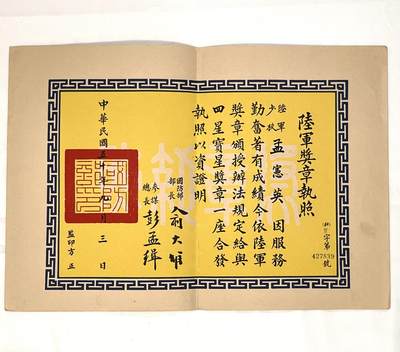 陸軍獎章執照
(49)字第427839號
陸軍少校 孟憲英 因服務
勤奮著有成績今依陸軍
獎章頒授辦法規定給與
四星寶星獎章一座合發
執照以資證明
國防部部長 俞大維
參謀總長 彭孟緝
中華民國五十年九月三日
監印方正